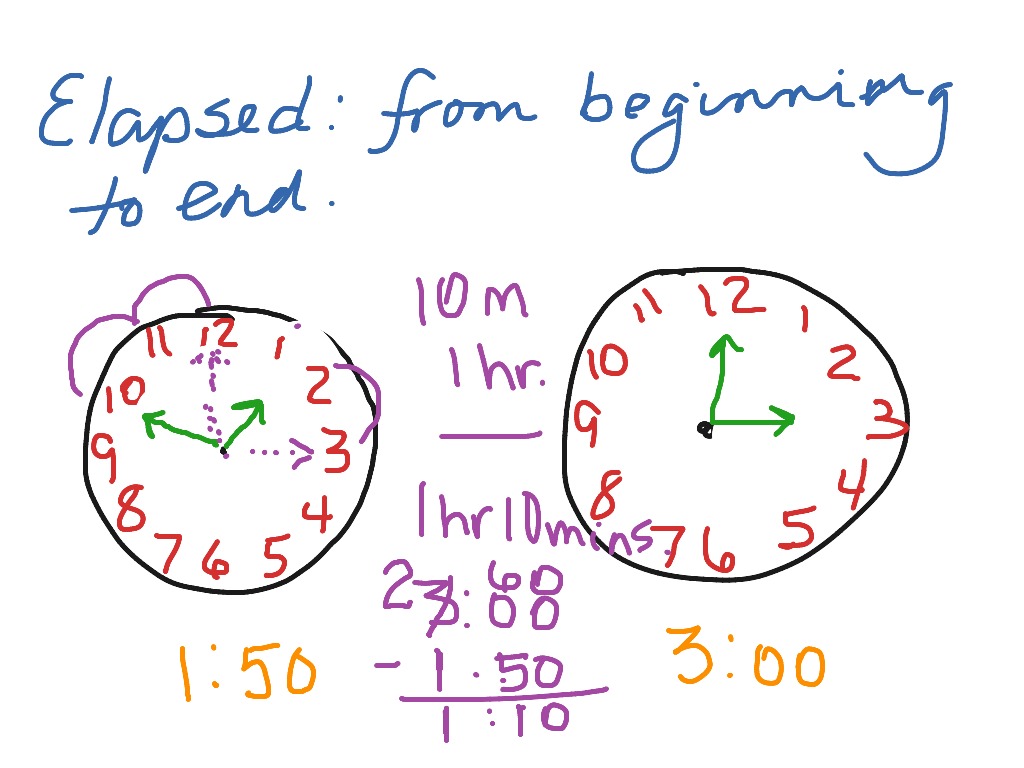 Elapsed: from beginning
to end.
11 12 1
10 2
9 3
8 4
7 6 5
10 m
1 hr.
1hr10mins.
11 12 1
10 2
9 3
8 4
7 6 5
2 60
3:00
- 1:50
1:10
1:50
3:00